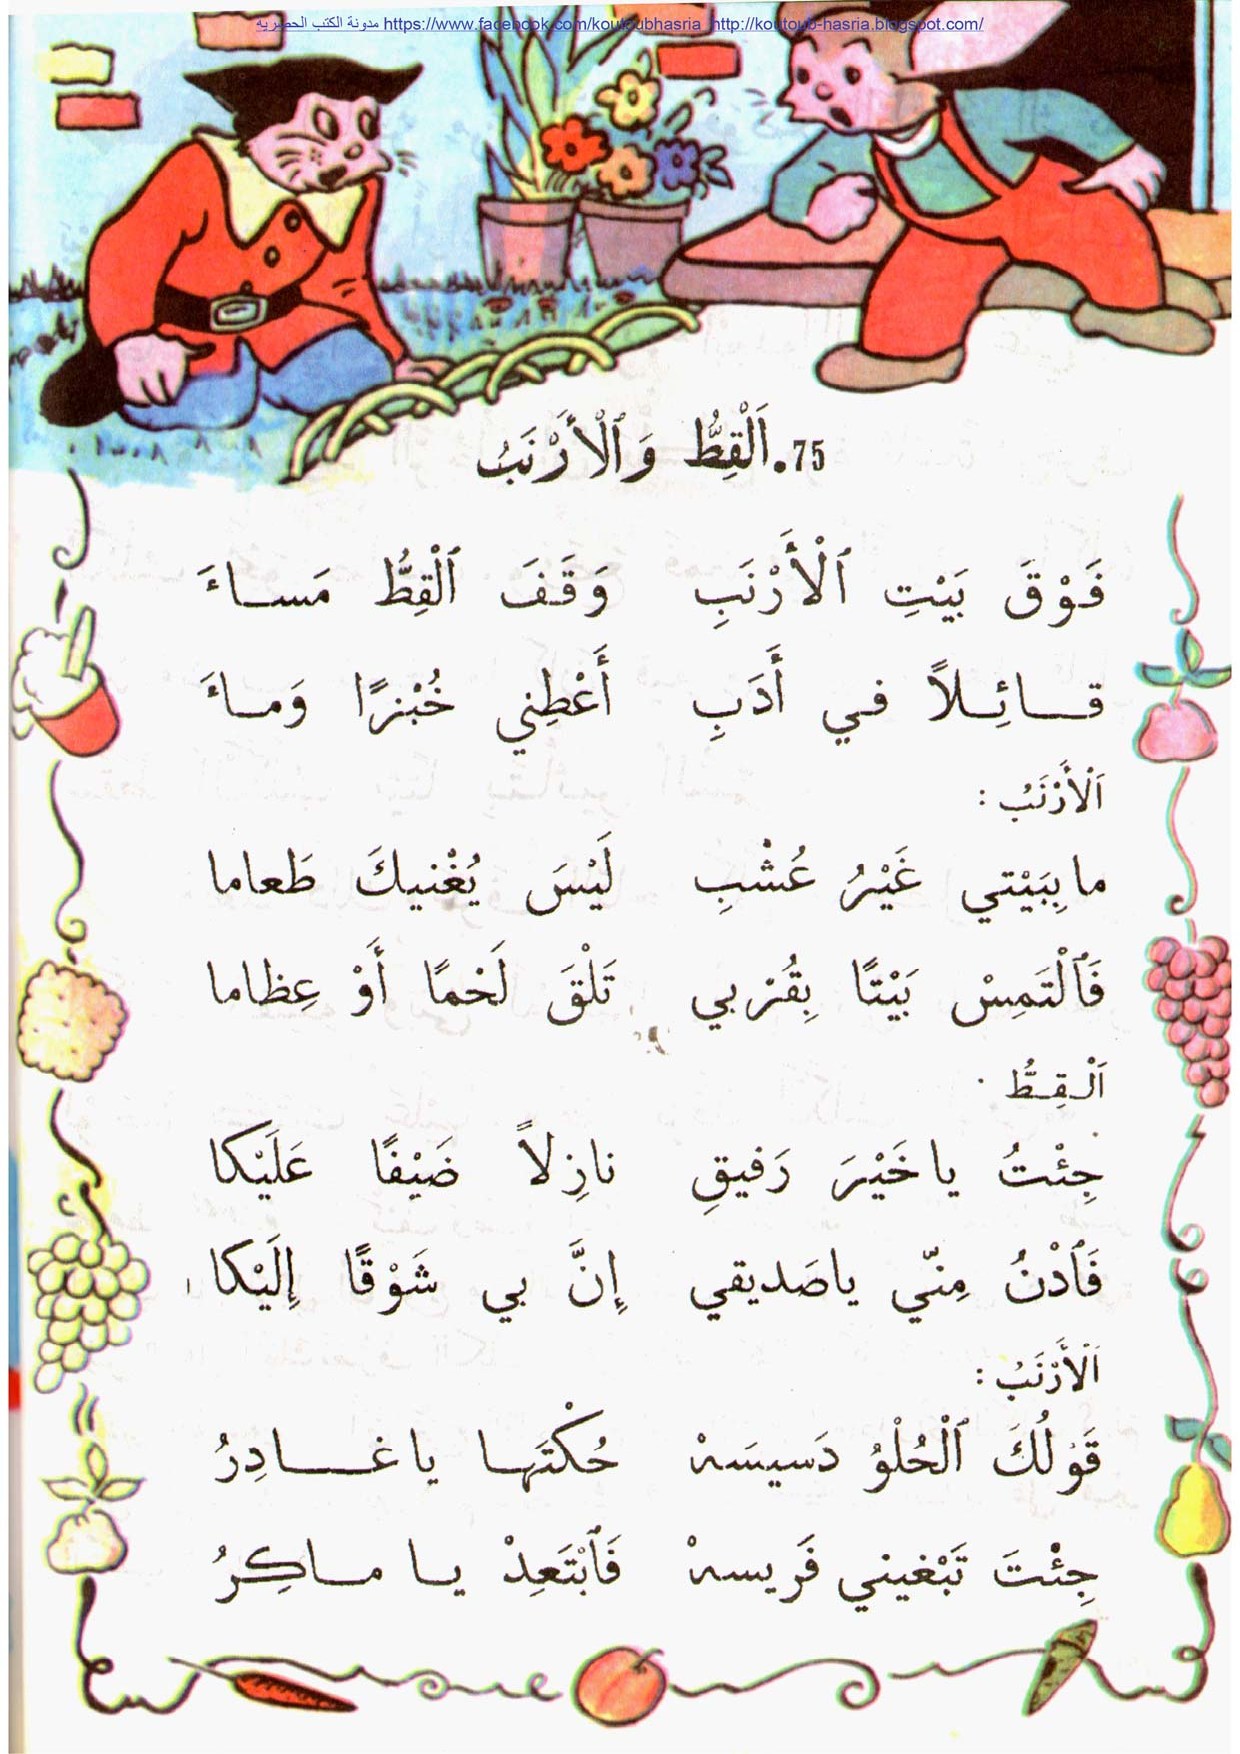 مدونة الكتب الحصريه https://www.facebook.com/koutoubhasria http://koutoub-hasria.blogspot.com/
75. اَلْقِطُّ وَٱلْأَرْنَبُ
فَوْقَ بَيْتِ ٱلْأَرْنَبِ وَقَفَ ٱلْقِطُّ مَساءَ
قائِلاً في أَدَبِ أَعْطِني خُبْزًا وَماءَ
اَلْأَرْنَبُ :
ما بِبَيْتي غَيْرُ عُشْبِ لَيْسَ يُغْنيكَ طَعاما
فَٱلْتَمِسْ بَيْتًا بِقُرْبي تَلْقَ لَحْمًا أَوْ عِظاما
اَلْقِطُّ .
جِئْتُ يا خَيْرَ رَفيقِ نازِلاً ضَيْفًا عَلَيْكا
فَٱدْنُ مِنّي يا صَديقي إِنَّ بي شَوْقًا إِلَيْكا
اَلْأَرْنَبُ :
قَوْلُكَ ٱلْحُلْوُ دَسيسَهْ حُكْتَها يا غادِرُ
جِئْتَ تَبْغيني فَريسهْ فَٱبْتَعِدْ يا ماكِرُ